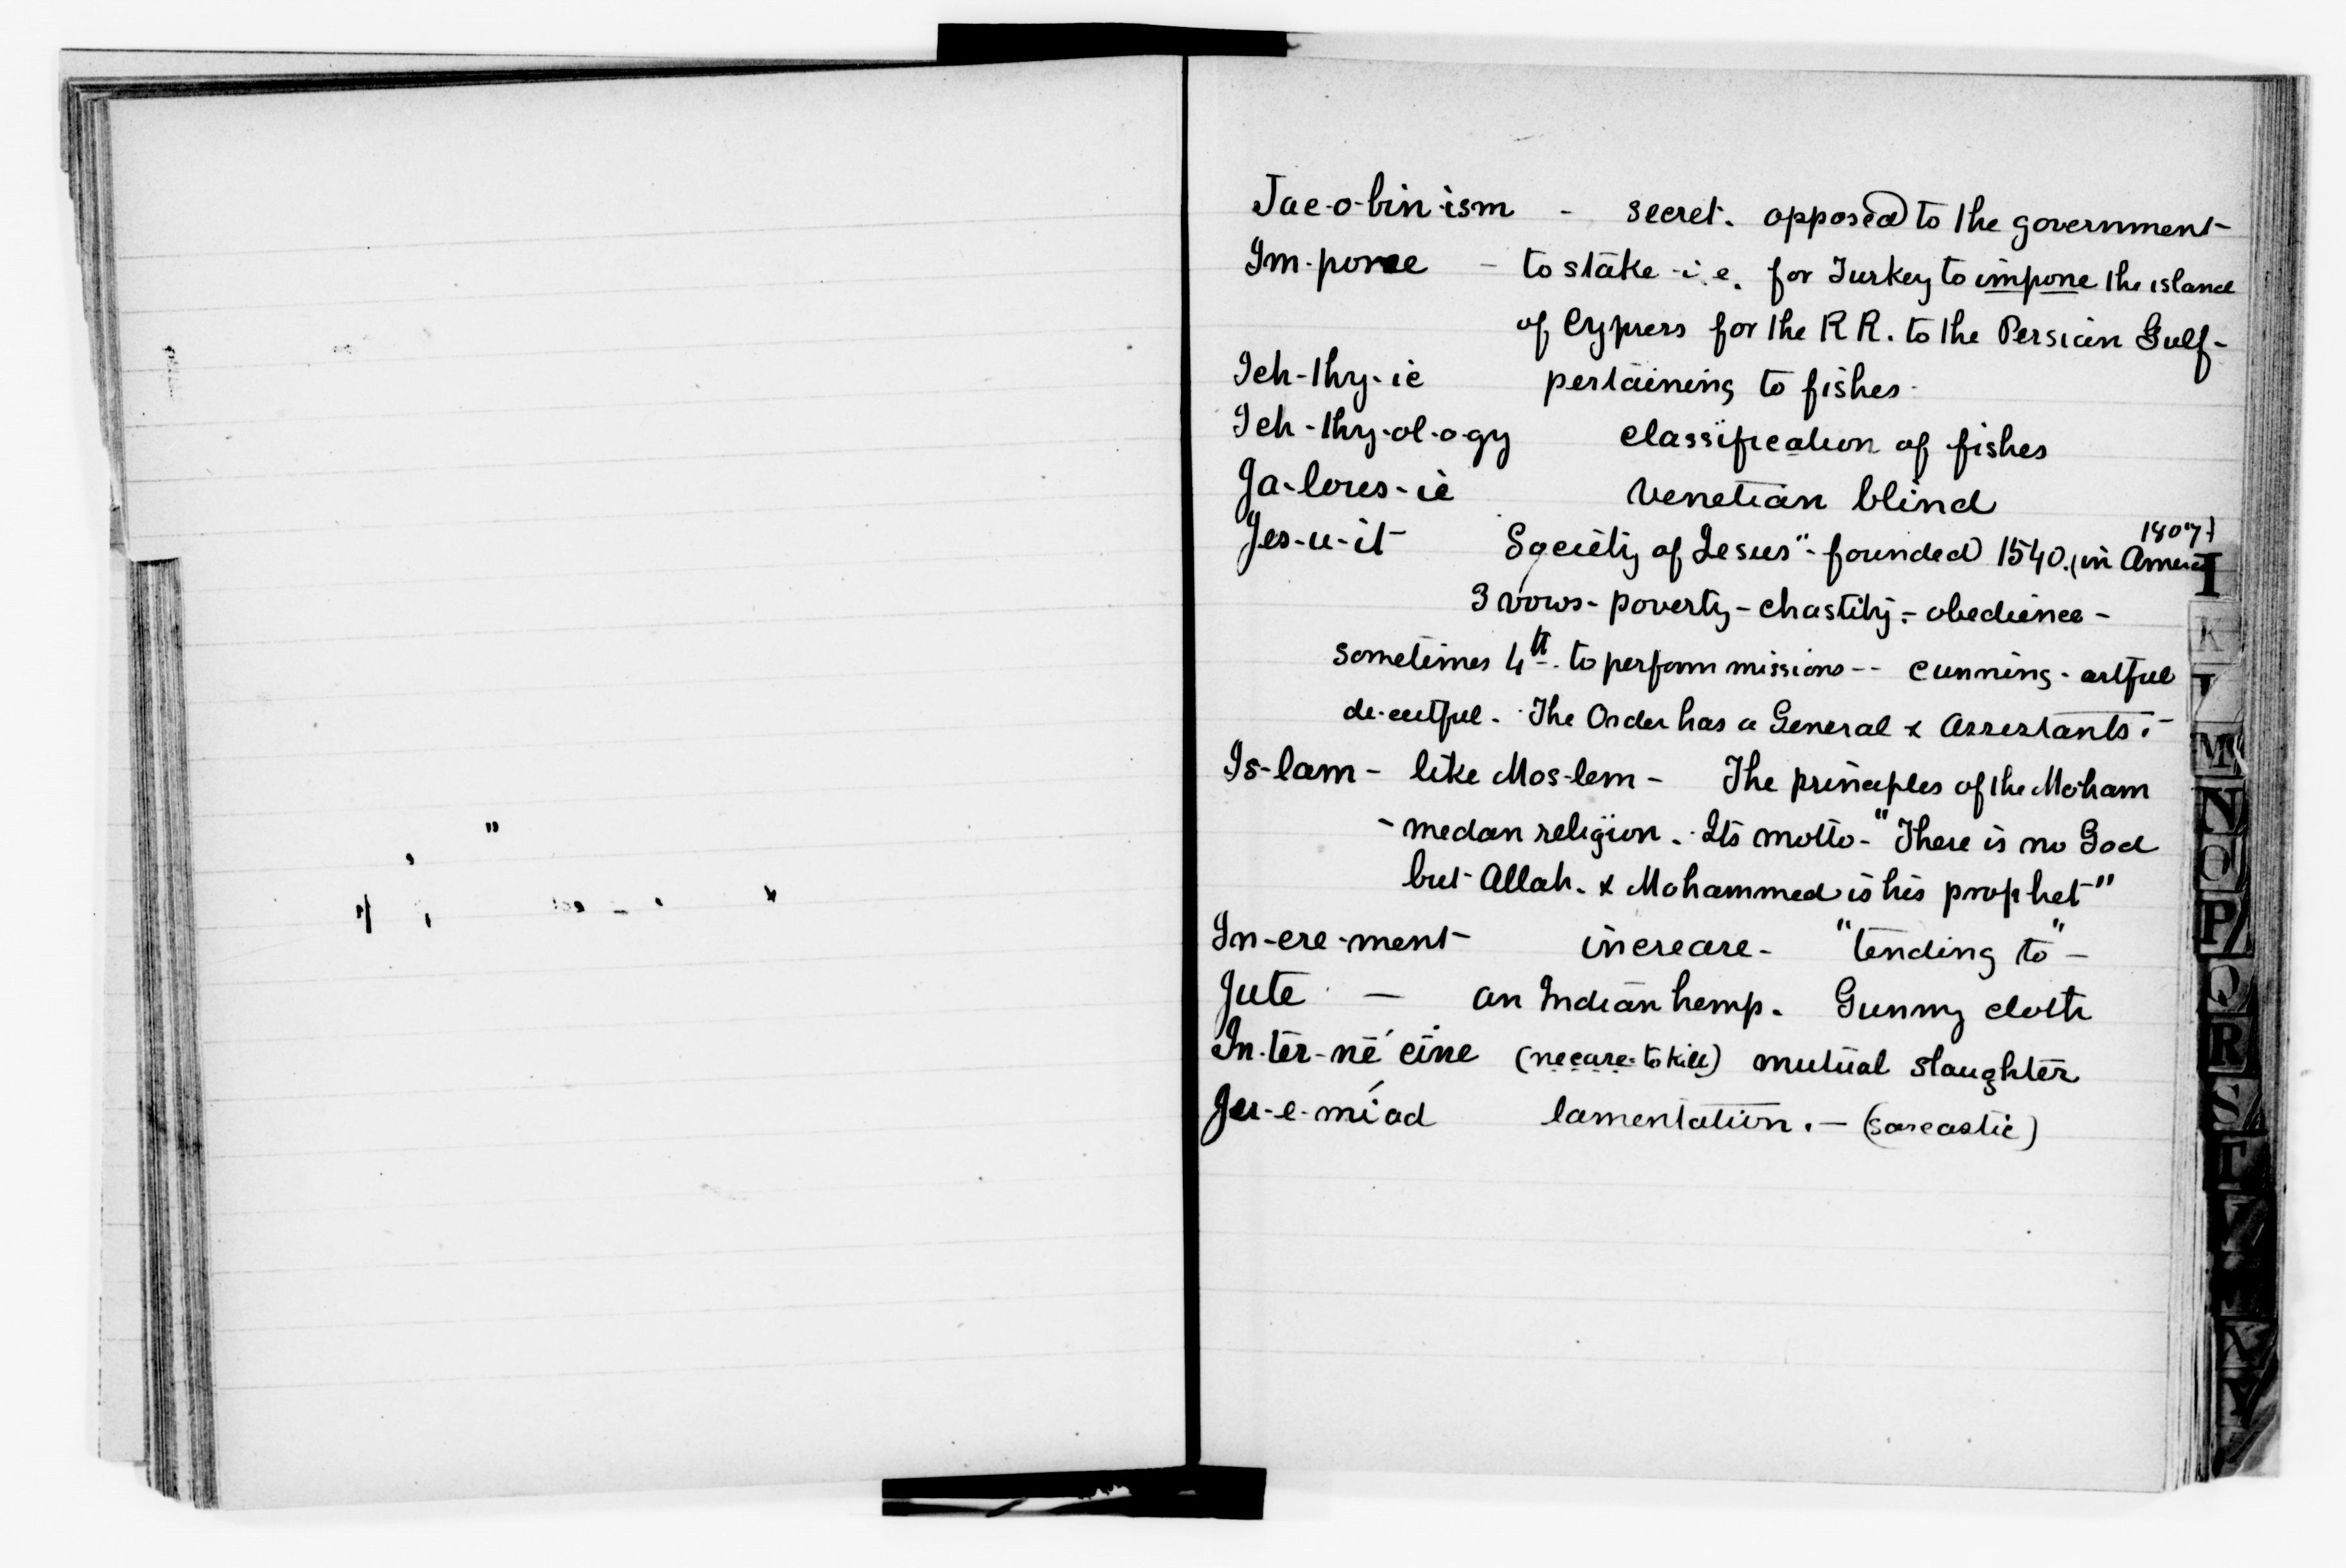 Jac-o-bin-ism - secret. opposed to the government-
Im-pone - to stake - i.e. for Turkey to impone the island
of Cypress for the R R. to the Persian Gulf-
Ich-thy-ic pertaining to fishes-
Ich-thy-ol-o-gy classification of fishes
Ja-lous-ie Venetian blind
1807)
Jes-u-it Society of Jesus"- founded 1540. (in America
3 vows - poverty - chastity - obedience -
sometimes 4th. to perform missions -- cunning - artful
de-ceitful. The Order has a General & Assistants. -
Is-lam - like Mos-lem - The principles of the Moham
- medan religion. Its motto - "There is no God
but Allah. & Mohammed is his prophet"
In-cre-ment increase - "tending to" -
Jute - an Indian hemp. Gunny cloth
In-ter-né cine (necare = to kill) mutual slaughter
Jer-e-mí ad lamentation. - (sarcastic)
I
K
M
N
O
P
Q
R
S
T
V
Y